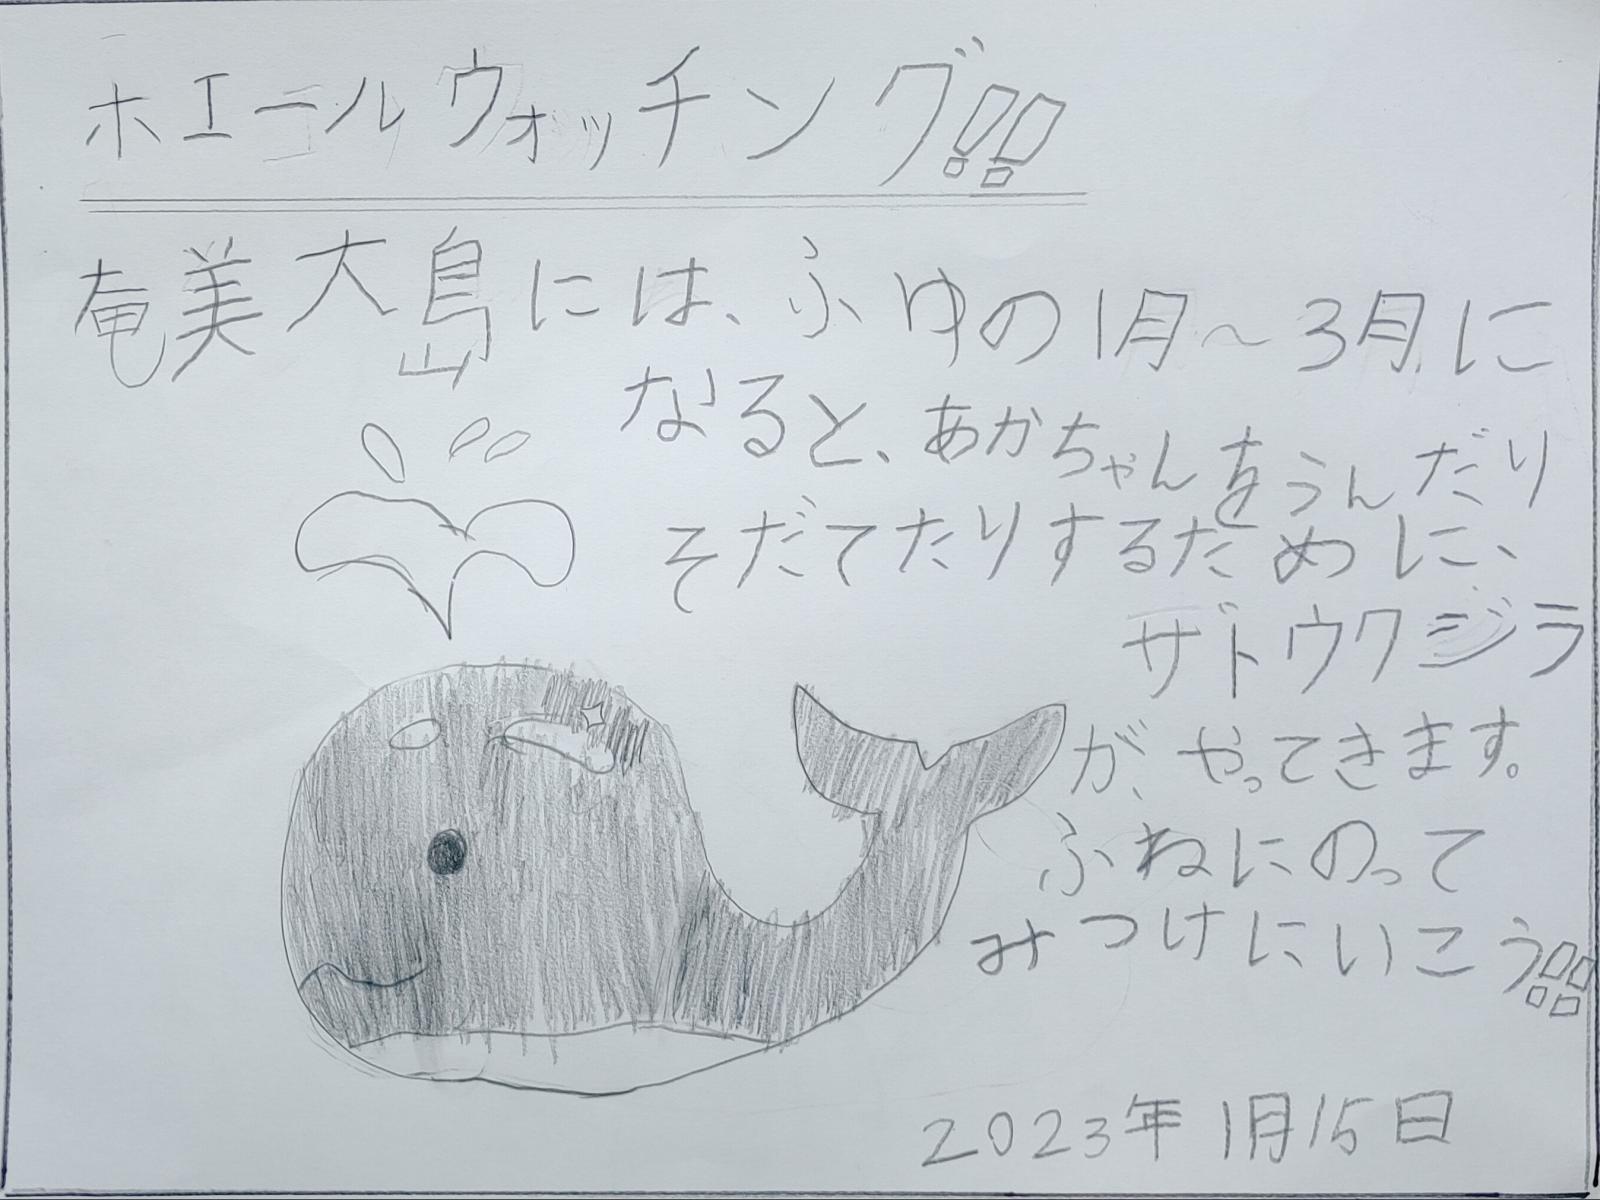 ホエールウォッチング!!
奄美大島には、ふゆの1月～3月に
なると、あかちゃんをうんだり
そだてたりするために、
ザトウクジラ
が、やってきます。
ふねにのって
みつけにいこう!!
2023年1月15日